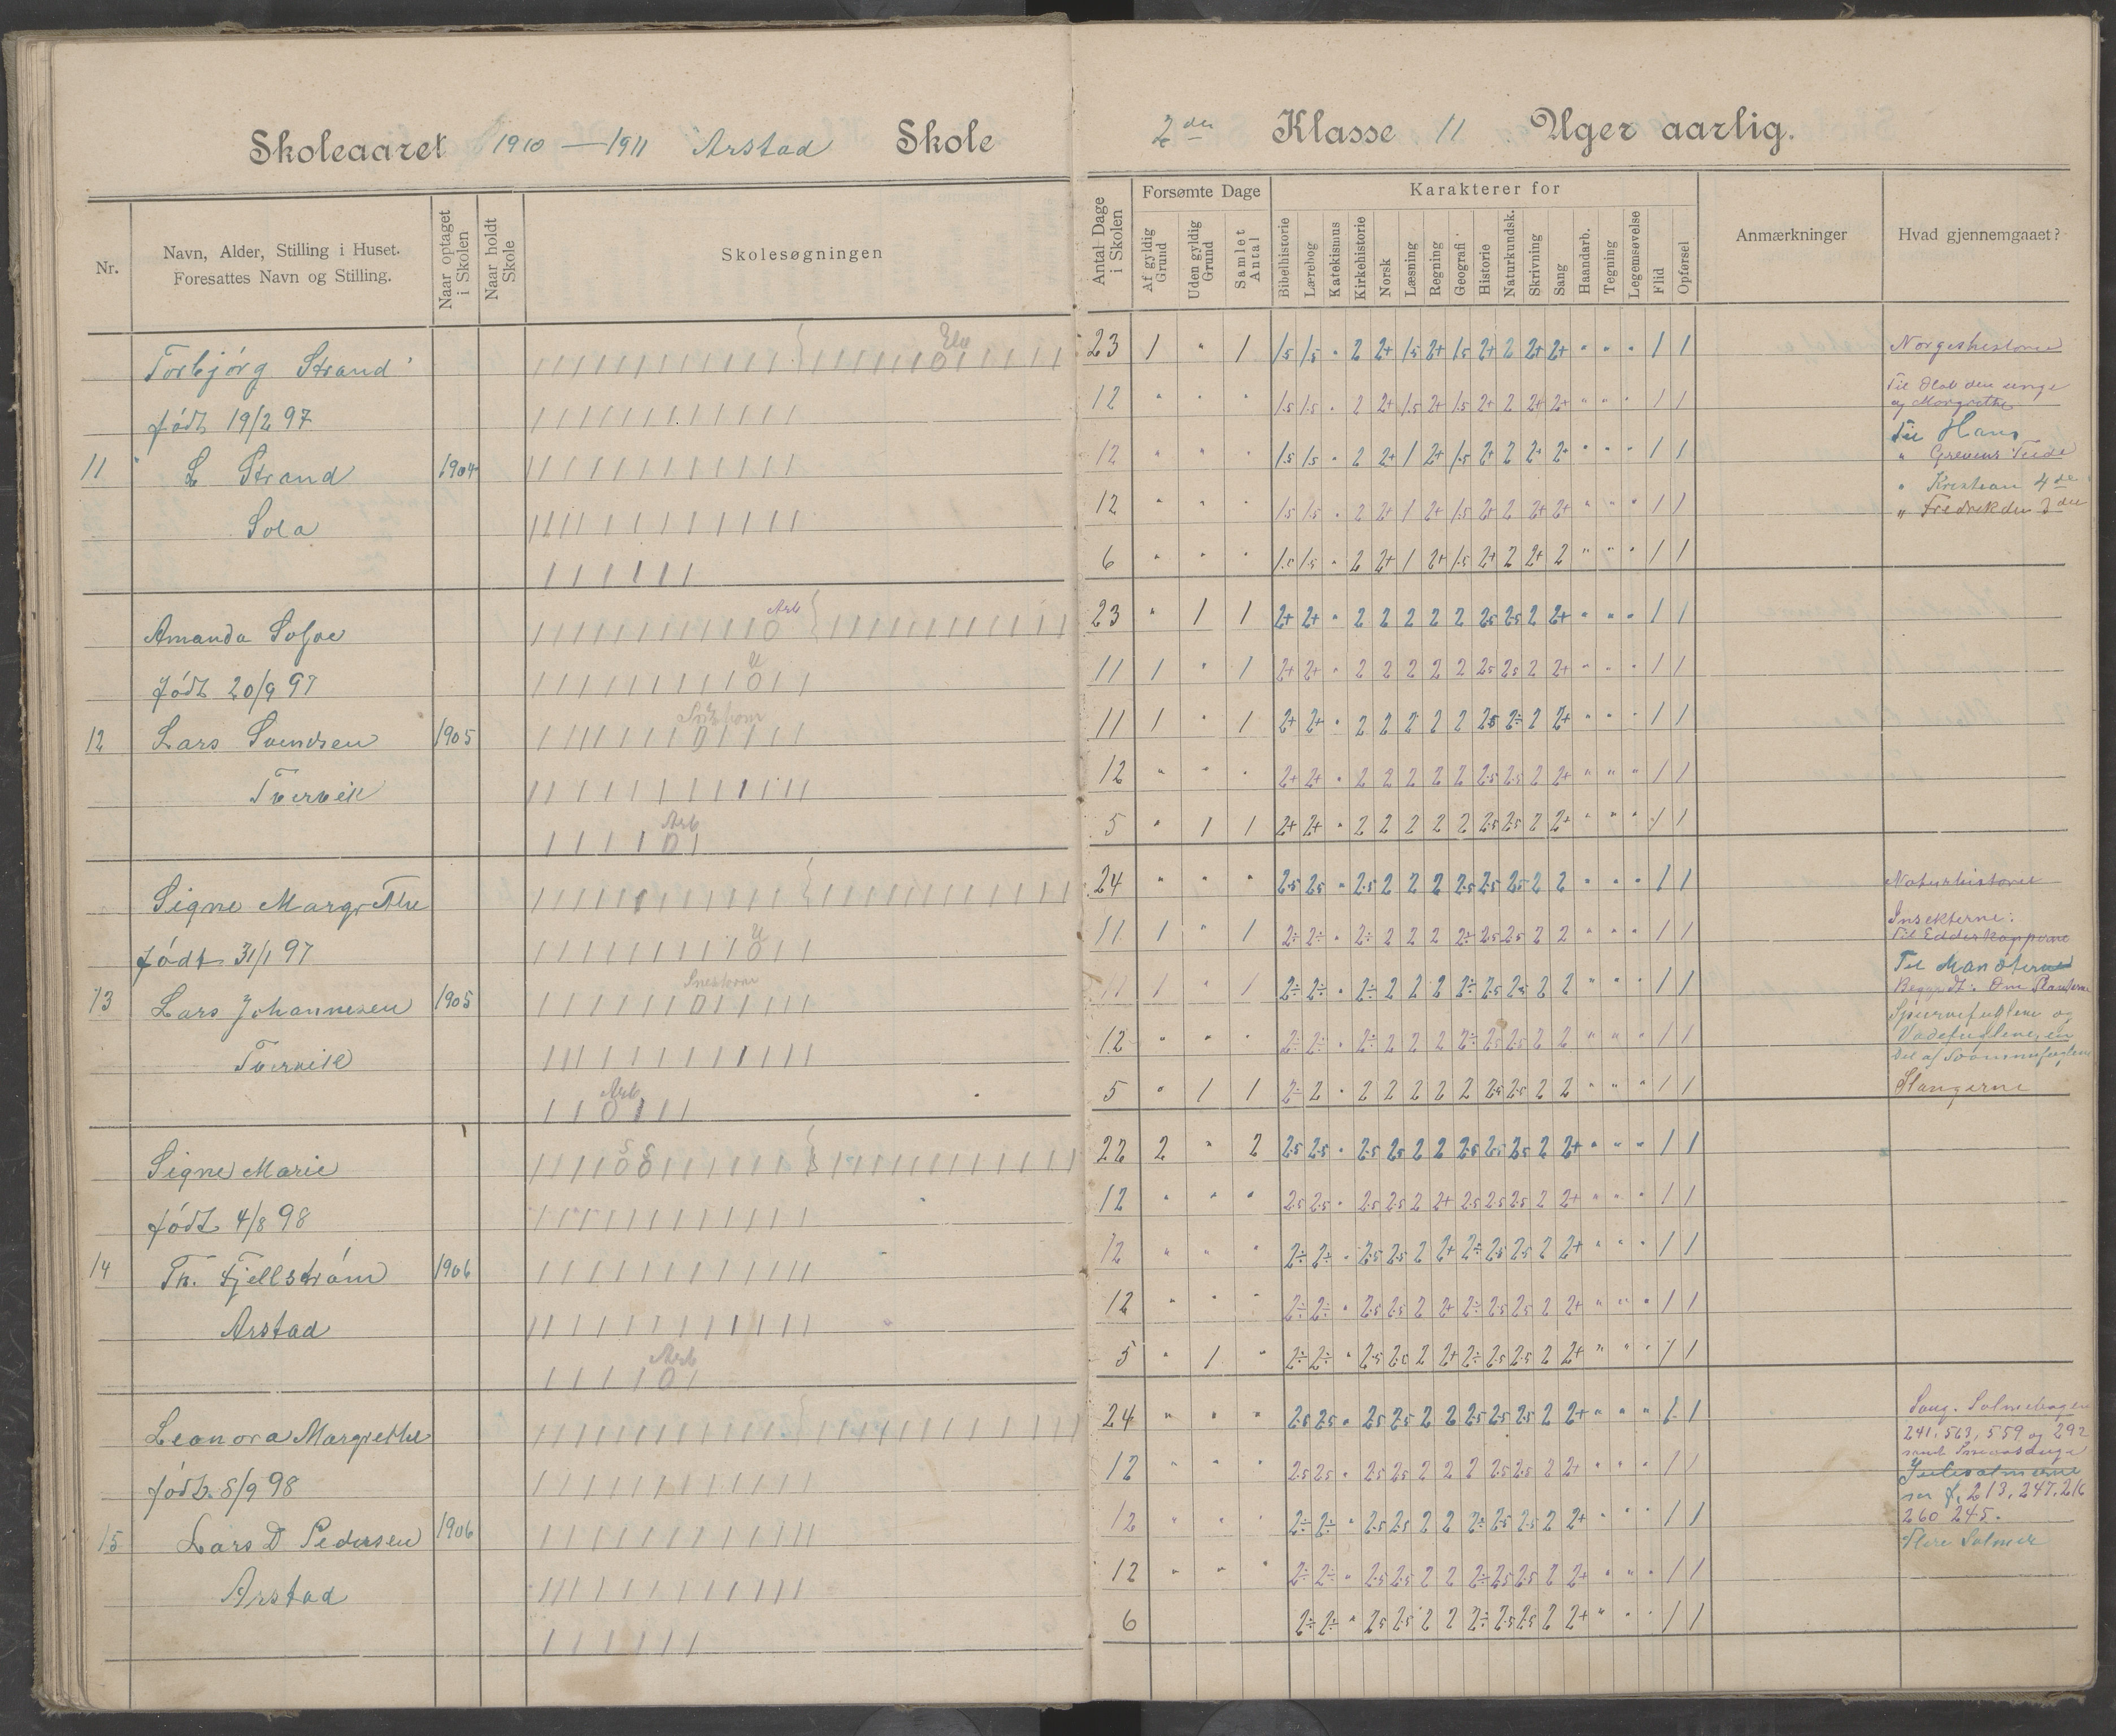 Skoleaaret 1910 — 1911 Arstad Skole
2den Klasse 11 Uger aarlig.
Nr.
Navn, Alder, Stilling i Huset.
Foresattes Navn og Stilling.
Naar optaget i Skolen
Naar holdt Skole
Skolesøgningen
Antal Dage i Skolen
Forsømte Dage
Af gyldig Grund
Uden gyldig Grund
Samlet Antal
Karakterer for
Bibelhistorie
Lærebog
Katekismus
Kirkehistorie
Norsk
Læsning
Regning
Geografi
Historie
Naturkundsk.
Skrivning
Sang
Haandarb.
Tegning
Legemsøvelse
Flid
Opførsel
Anmærkninger
Hvad gjennemgaaet?
Torbjørg Strand
født 19/2 97
11 L Strand 1904
Sola
23 1 " 1 1.5 1.5 " 2 2+ 1.5 2+ 1.5 2+ 2 2+ 2+ " " " 1 1
12 " " " 1.5 1.5 " 2 2+ 1.5 2+ 1.5 2+ 2 2+ 2+ " " " 1 1
12 " " " 1.5 1.5 " 2 2+ 1 2+ 1.5 2+ 2 2+ 2+ " " " 1 1
12 " " " 1.5 1.5 " 2 2+ 1 2+ 1.5 2+ 2 2+ 2+ " " " 1 1
6 " " " 1.5 1.5 " 2 2+ 1 2+ 1.5 2+ 2 2+ 2 " " " 1 1
Norgeshistorie
Til Olab den unge
og Margrethe
Til Hans
" Grevens Feide
" Kristian 4de
" Fredrik den 3die
Amanda Sofie
født 20/9 97
12 Lars Svendsen 1905
Tvervik
Arb
U
Arb
23 " 1 1 2+ 2+ " 2 2 2 2 2 2.5 2.5 2 2+ " " " 1 1
11 1 " 1 2+ 2+ " 2 2 2 2 2 2.5 2.5 2 2+ " " " 1 1
11 1 " 1 2+ 2+ " 2 2 2 2 2 2.5 2÷ 2 2+ " " " 1 1
12 " " " 2+ 2+ " 2 2 2 2 2 2.5 2.5 2 2+ " " " 1 1
5 " 1 1 2+ 2+ " 2 2 2 2 2 2.5 2.5 2 2+ " " " 1 1
Signe Margrethe
født 31/1 97
13 Lars Johannesen 1905
Tvervik
U
Snestorm
Arb
24 " " " 2.5 2.5 " 2.5 2 2 2 2.5 2.5 2.5 2 2 " " " 1 1
11 1 " 1 2÷ 2÷ " 2÷ 2 2 2 2÷ 2.5 2.5 2 2 " " " 1 1
11 1 " 1 2÷ 2÷ " 2÷ 2 2 2 2÷ 2.5 2.5 2 2 " " " 1 1
12 " " " 2÷ 2÷ " 2÷ 2 2 2 2÷ 2.5 2.5 2 2 " " " 1 1
5 " 1 1 2÷ 2 " 2 2 2 2 2 2.5 2.5 2 2 " " " 1 1
Naturhistorie
Insekterne:
Til Edderkopperne
Spurvefuglene og
Vadefuglene, en
Del af Svømmefuglene
Slangerne
Signe Marie
født 4/8 98
14 Th. Fjellstrøm 1906
Arstad
S S
Arb
22 2 " 2 2.5 2.5 " 2.5 2.5 2 2 2.5 2.5 2.5 2 2+ " " " 1 1
12 " " " 2.5 2.5 " 2.5 2.5 2 2+ 2.5 2.5 2.5 2 2+ " " " 1 1
12 " " " 2÷ 2÷ " 2.5 2.5 2 2+ 2÷ 2.5 2.5 2 2+ " " " 1 1
12 " " " 2÷ 2÷ " 2.5 2.5 2 2+ 2÷ 2.5 2.5 2 2+ " " " 1 1
5 " 1 " 2÷ 2÷ " 2.5 2.5 2 2+ 2÷ 2.5 2.5 2 2+ " " " 1 1
Leonora Margrethe
født 8/9 98
15 Lars D Pedersen 1906
Arstad
24 " " " 2.5 2.5 " 2.5 2.5 2 2 2.5 2.5 2.5 2 2+ " " " 1 1
12 " " " 2.5 2.5 " 2.5 2.5 2 2 2 2.5 2.5 2 2+ " " " 1 1
12 " " " 2÷ 2÷ " 2.5 2.5 2 2 2÷ 2.5 2.5 2 2+ " " " 1 1
12 " " " 2÷ 2÷ " 2.5 2.5 2 2 2÷ 2.5 2.5 2 2+ " " " 1 1
6 2÷ 2÷ " 2.5 2.5 2 2 2÷ 2.5 2.5 2 2+ " " " 1 1
Sang. Salmebogen
241. 563, 559 og 292
Julesalmerne
213. 247. 216
260 245.
Flere Salmer